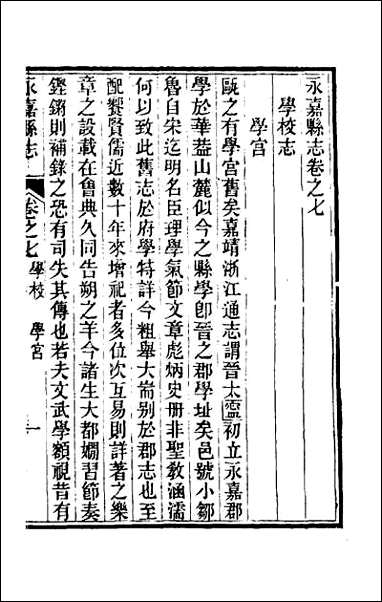 永嘉縣志卷之七
學校志
學宮
甌之有學宮舊矣嘉靖浙江通志謂晉太寧初立永嘉郡
學於華蓋山麓似今之縣學卽晉之郡學址矣邑號小鄒
魯自宋迄明名臣理學氣節文章彪炳史册非聖敎涵濡
何以致此舊志於府學特詳今粗舉大耑別於郡志也至
配饗賢儒近數十年來增祀者多位次互易則詳著之樂
章之設載在魯典久同告朔之羊今諸生大都嫺習節奏
鏗鏘則補錄之恐有司失其傳也若夫文武學額視昔有
永嘉縣志 卷之七 學校 學宮 一